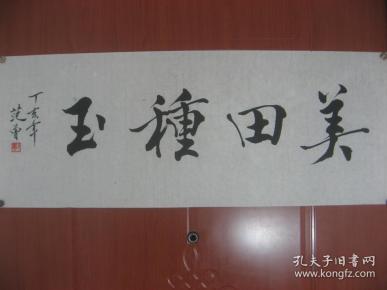 美田種玉
丁亥年
范曾
孔夫子旧书网
www.kongfz.com